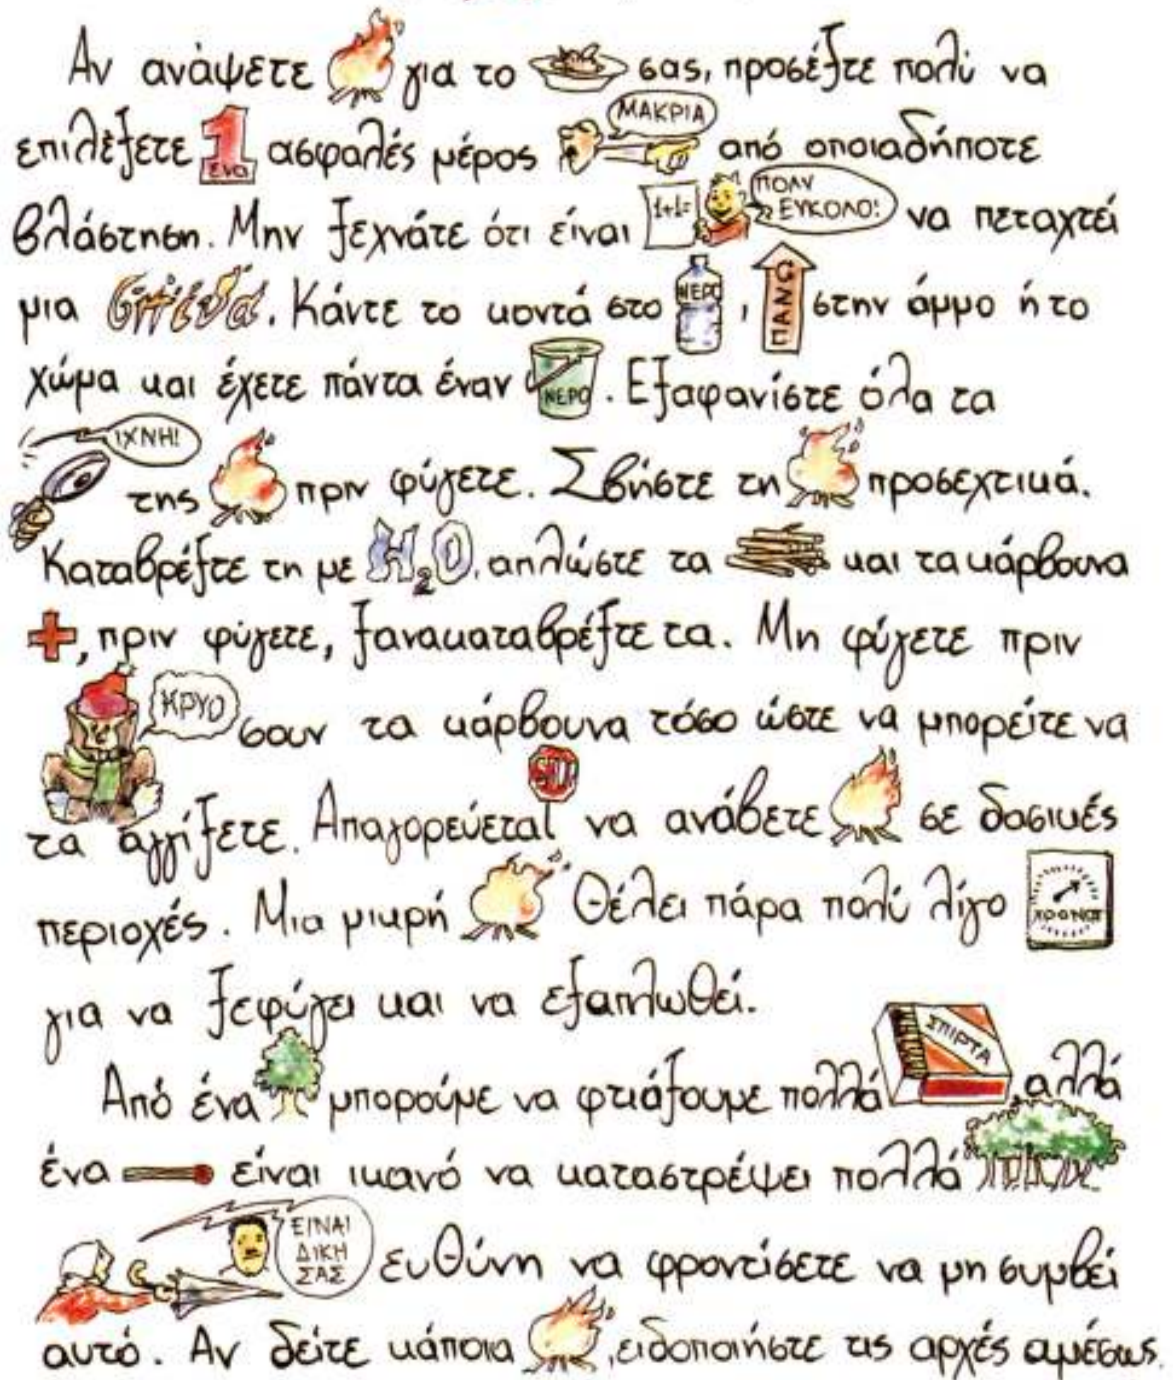 Αν ανάψετε για το σας, προσέξτε πολύ να
ΜΑΚΡΙΑ
επιλέξετε 1 ένα ασφαλές μέρος από οποιαδήποτε
1+1= ΠΟΛΥ ΕΥΚΟΛΟ!
βλάστηση. Μην ξεχνάτε ότι είναι να πεταχτεί
μια σπίθα. Κάντε το κοντά στο ΝΕΡΟ, ΠΑΝΩ στην άμμο ή το
χώμα και έχετε πάντα έναν ΝΕΡΟ. Εξαφανίστε όλα τα
ΙΧΝΗ!
της πριν φύγετε. Σβήστε τη προσεχτικά.
Καταβρέξτε τη με H2O, απλώστε τα και τα κάρβουνα
+, πριν φύγετε, ξανακαταβρέξτε τα. Μη φύγετε πριν
ΚΡΥΩ σουν τα κάρβουνα τόσο ώστε να μπορείτε να
STOP
τα αγγίξετε. Απαγορεύεται να ανάβετε σε δασικές
περιοχές. Μια μικρή θέλει πάρα πολύ λίγο ΧΡΟΝΟ
για να ξεφύγει και να εξαπλωθεί.
ΣΠΙΡΤΑ
Από ένα μπορούμε να φτιάξουμε πολλά, αλλά
ένα είναι ικανό να καταστρέψει πολλά
ΕΙΝΑΙ ΔΙΚΗ ΣΑΣ ευθύνη να φροντίσετε να μη συμβεί
αυτό. Αν δείτε κάποια, ειδοποιήστε τις αρχές αμέσως.